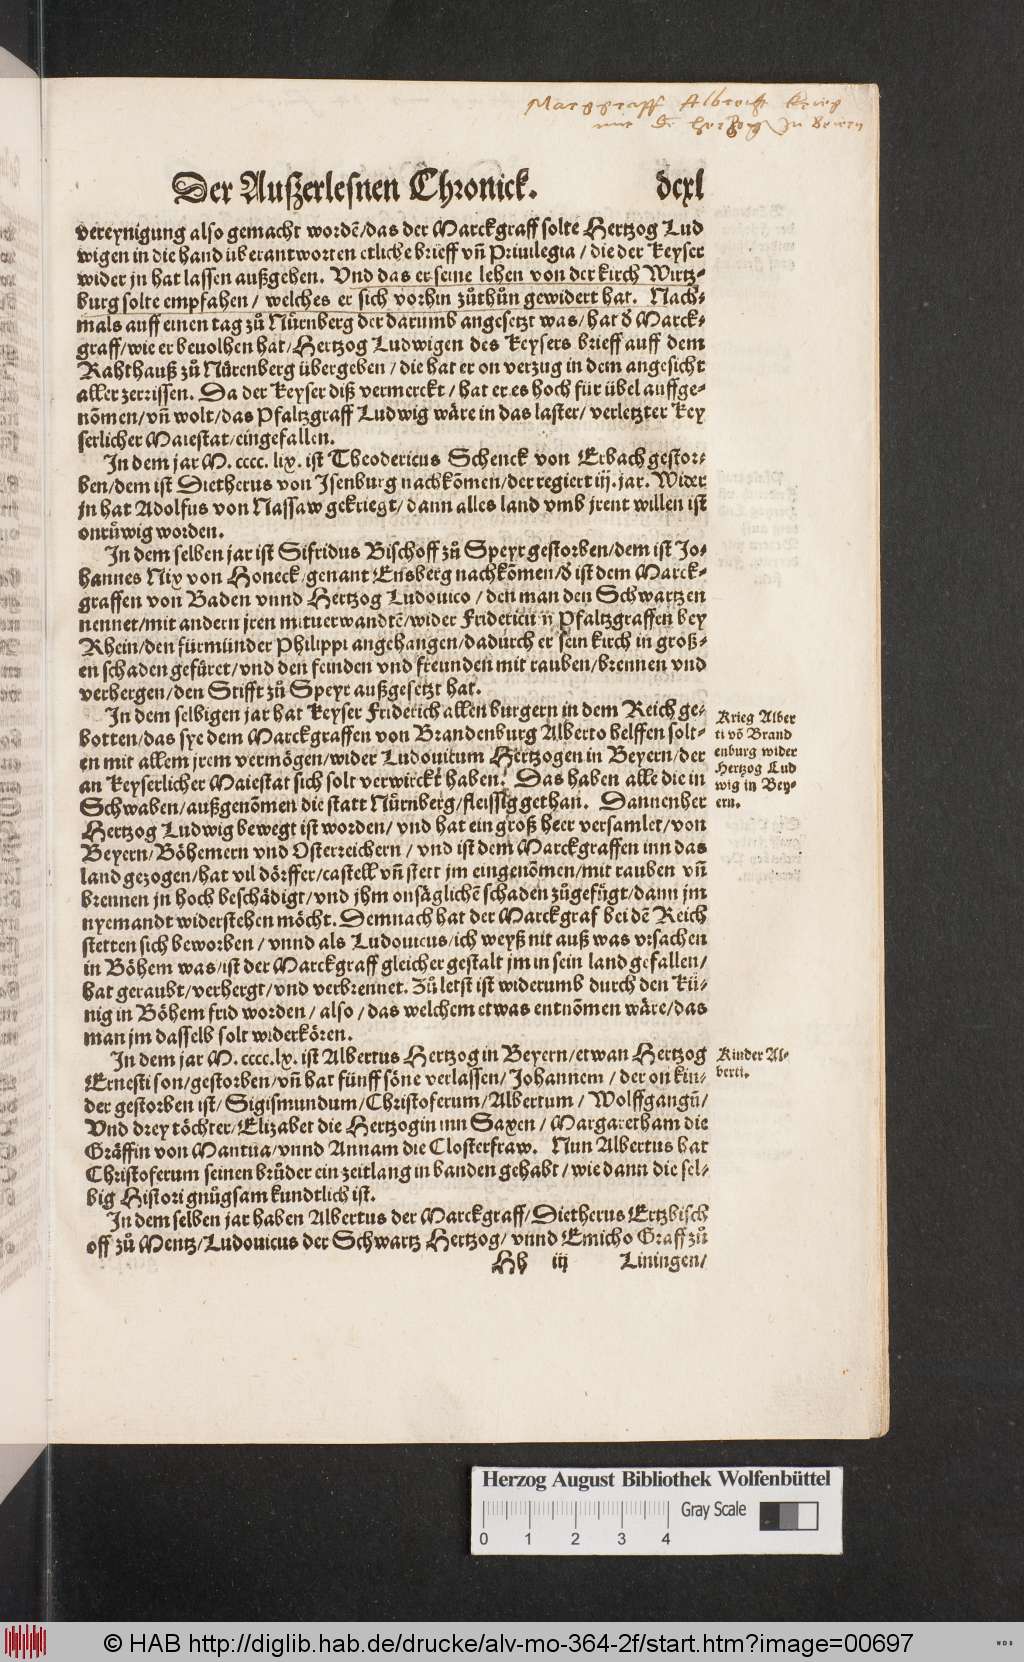 Marggraff Albrecht Krieg
mit dē hertzog in beiern
Der Außerlesnen Chronick. dcxl
vereynigung also gemacht wordē/das der Marckgraff solte Hertzog Lud
wigen in die hand überantworten etliche brieff vñ Priuilegia / die der Keyser
wider jn hat lassen außgehen. Vnd das er seine lehen von der kirch Wirtz-
burg solte empfahen / welches er sich vorhin zůthůn gewidert hat. Nach-
mals auff einen tag zů Nürnberg der darumb angesetzt was/ hat d̄ Marck-
graff/wie er beuolhen hat/Hertzog Ludwigen des Keysers brieff auff dem
Rahthauß zů Nürenberg übergeben / die hat er on verzug in dem angesicht
aller zerrissen. Da der Keyser diß vermerckt / hat er es hoch für übel auffge-
nōmen/vñ wolt/das Pfaltzgraff Ludwig wäre in das laster/ verletzter Key
serlicher Maiestat/eingefallen.
In dem jar M. cccc. lix. ist Theodericus Schenck von Erbach gestor-
ben/dem ist Dietherus von Jsenburg nachkōmen/der regiert iij. jar. Wider
jn hat Adolfus von Nassaw gekriegt/ dann alles land vmb jrent willen ist
onrůwig worden.
In dem selben jar ist Sifridus Bischoff zů Speyr gestorben/dem ist Jo-
hannes Nix von Honeck/genant Ensberg nachkōmen/d̄ ist dem Marck-
graffen von Baden vnnd Hertzog Ludouico / den man den Schwartzen
nennet/mit andern jren mituerwandtē/wider Fridericū ñ Pfaltzgraffen bey
Rhein/den fürmünder Philippi angehangen/dadurch er sein kirch in groß-
en schaden gefüret/vnd den feinden vnd freunden mit rauben/brennen vnd
verhergen/den Stifft zů Speyr außgesetzt hat.
In dem selbigen jar hat Keyser Friderich allen burgern in dem Reich ge-
botten/das sye dem Marckgraffen von Brandenburg Alberto helffen solt-
en mit allem jrem vermögen/wider Ludouicum Hertzogen in Beyern/der
an Keyserlicher Maiestat sich solt verwirckt haben. Das haben alle die in
Schwaben/außgenōmen die statt Nürnberg/fleissig gethan. Dannenher
Hertzog Ludwig bewegt ist worden/ vnd hat ein groß heer versamlet/von
Beyern/Böhemern vnd Osterreichern / vnd ist dem Marckgraffen inn das
land gezogen/hat vil dörffer/castell vñ stett jm eingenōmen/mit rauben vñ
brennen jn hoch beschädigt/vnd jhm onsäglichē schaden zůgefügt/dann jm
nyemandt widerstehen möcht. Demnach hat der Marckgraf bei dē Reich
stetten sich beworben / vnnd als Ludouicus/ich weyß nit auß was vrsachen
in Böhem was/ist der Marckgraff gleicher gestalt jm in sein land gefallen/
hat geraubt/verhergt/vnd verbrennet. Zů letst ist widerumb durch den Kü-
nig in Böhem frid worden / also / das welchem etwas entnōmen wäre/das
man jm dasselb solt widerkören.
In dem jar M. cccc.lx. ist Albertus Hertzog in Beyern/etwan Hertzog
Ernesti son/gestorben/vñ hat fünff söne verlassen/Johannem / der on kin-
der gestorben ist/ Sigismundum/Christoferum/Albertum / Wolffgangū/
Vnd drey töchter/Elizabet die Hertzogin inn Saxen / Margaretham die
Gräffin von Mantua/vnnd Annam die Closterfraw. Nun Albertus hat
Christoferum seinen brůder ein zeitlang in banden gehabt / wie dann die sel-
big Histori gnůgsam kundtlich ist.
In dem selben jar haben Albertus der Marckgraff/Dietherus Ertzbisch
off zů Mentz/Ludouicus der Schwartz Hertzog/ vnnd Emicho Graff zů
Hh iij Liningen/
Krieg Alber
ti vō Brand
enburg wider
Hertzog Lud
wig in Bey-
ern.
Kinder Al-
berti.
Herzog August Bibliothek Wolfenbüttel
Gray Scale
0 1 2 3 4
© HAB http://diglib.hab.de/drucke/alv-mo-364-2f/start.htm?image=00697